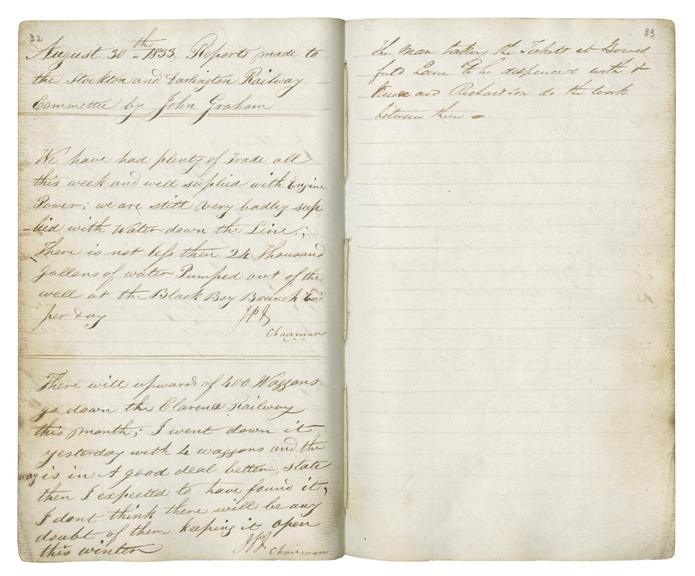 32
August 30th 1833, Reports made to
the Stockton and Darlington Railway
Committee by John Graham
We have had plenty of Trade all
this week and well suplied with Engine
Power; we are still very badley sup
-lied with Water down the Line.;
There is not less then 24 Thousand
gallons of water Pumped out of the
well at the Black Boy Branch End
per day
Chairman
There will upwards of 400 Waggons
go down the Clarence Railway
this month; I went down it
yesterday with 4 waggons and the
way is in A good deal better state
then I expected to have found it,
I dont think there will be any
doubt of them keeping it open
this winter
Chairman
33
The man taking the Tickets at
Lane to be dispenced with &
and Richardson do the work
between them